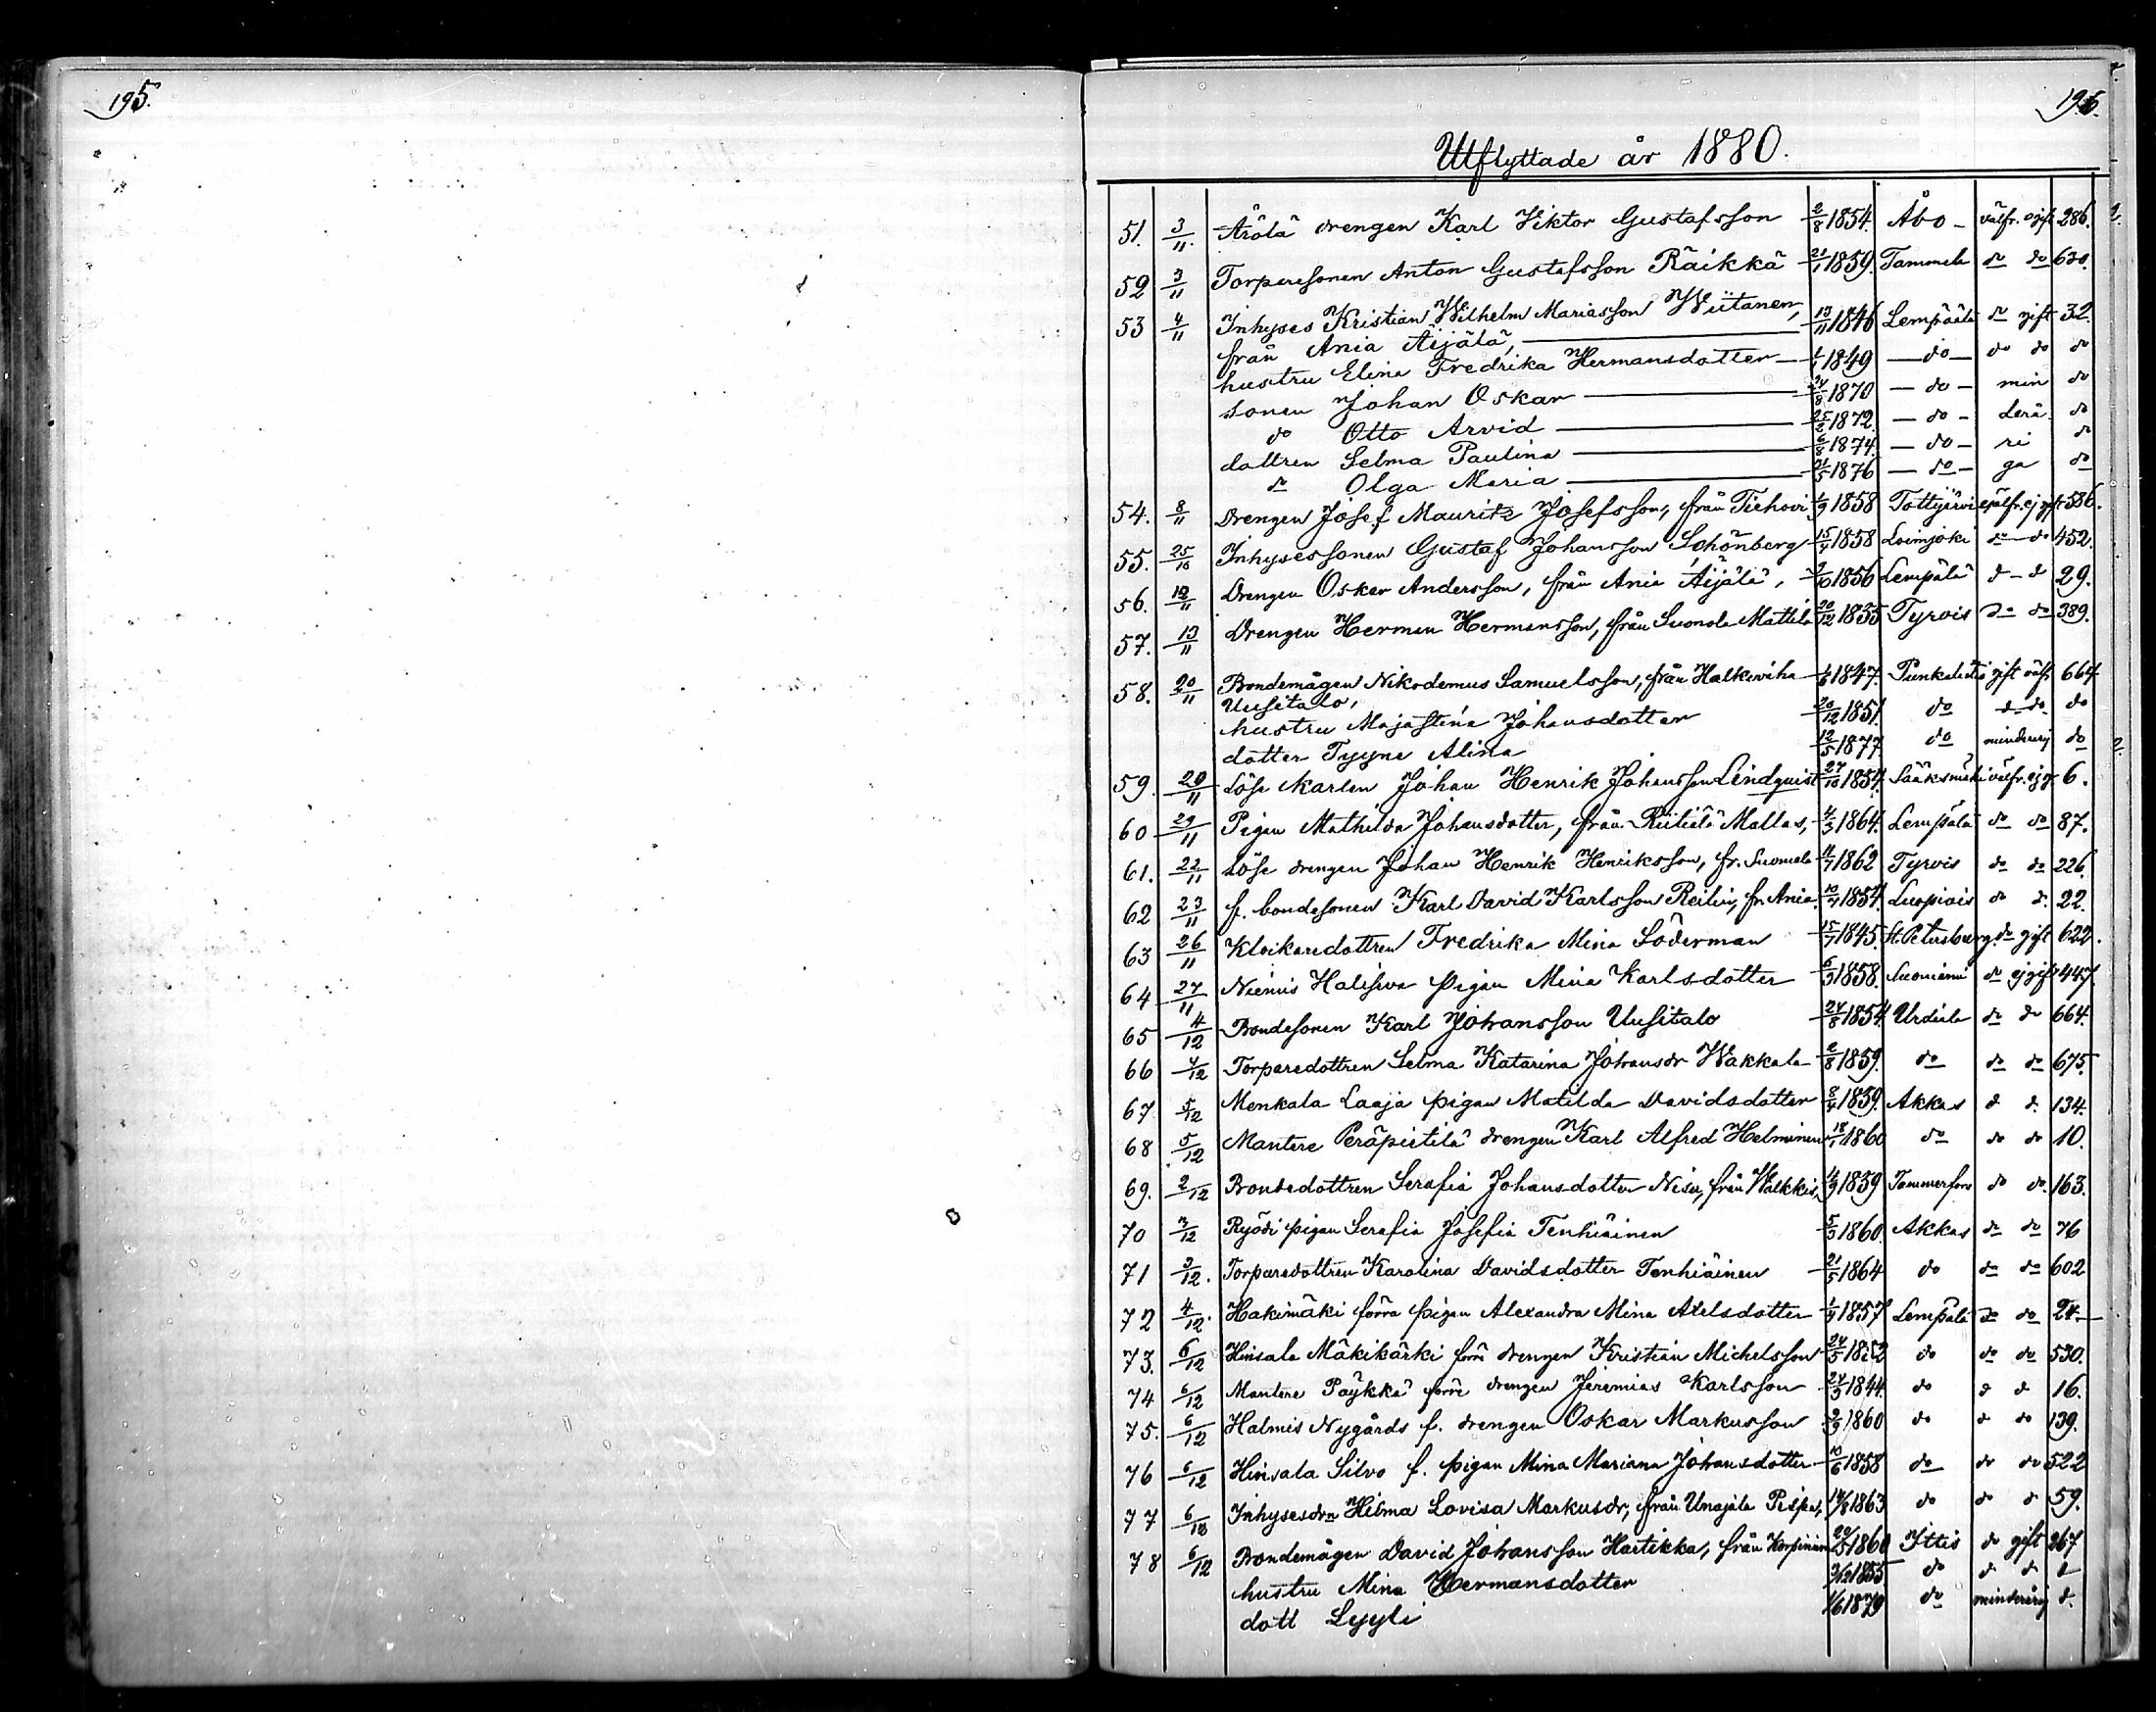 195.
196.
Utflyttade år 1880.
51. 3/11. Arölä drengen Karl Viktor Gustafsson 2/8 1854. Åbo välfr. ogift 286.
52 3/11 Torparesonen Anton Gustafsson Räikkä 21/1 1859. Tammela do do 630.
53 4/11 Inhyses Kristian Wilhelm Mariasson Wiitanen, 13/11 1846 Lempäälä do gift 32.
från Ania Äijälä,
hustru Elina Fredrika Hermansdotter 1849 do do do do
sonen Johan Oskar 24/8 1870 do min do
do Otto Arvid 25/2 1872. do derå do
dottren Selma Paulina 6/8 1874. do ri do
do Olga Maria 21/5 1876 do ga do
54. 8/11 Drengen Josef Mauritz Josefsson, från Tiehovi 1/9 1858 Tottijärvi välfr. ej gift 586.
55. 25/10 Inhysessonen Gustaf Johansson Schönberg 15/4 1858 Loimjoki do do 452.
56. 12/11 Drengen Oskar Andersson, från Ania Äijälä, 9/10 1856 Lempälä d d 29.
57. 13/11 Drengen Herman Hermansson, från Suonola Mattila 20/12 1855 Tyrvis do do 389.
58. 20/11 Bondemågen Nikodemus Samuelsson, från Halkivaha 1/6 1847. Punkalaitio gift välfr 664.
Uusitalo,
hustru Majastina Johansdotter 20/12 1851. do d do do
dotter Tyyne Alina 12/5 1877 do minderårig do
59. 20/11 Löse karlen Johan Henrik Johansson Lindquist 27/10 1854. Sääksmäki välfr. ej g. 6.
60 29/11 Pigan Mathilda Johansdotter, från Riitiälä Mattas, 4/3 1864. Lempälä do do 87.
61. 22/11 Löse drengen Johan Henrik Henriksson, fr. Suomela 11/7 1862 Tyrvis do do 226.
62 23/11 f. bondesonen Karl David Karlsson Reilin, fr. Ania. 10/7 1854. Luopiois do d. 22.
63 26/11 Klockaredottren Fredrika Mina Söderman 15/7 1845. St. Petersburg. do gift 622.
64 27/11 Niemis Halisiva pigan Mina Karlsdotter 6/3 1858. Suoniemi do ej gift 447.
65 4/12 Bondesonen Karl Johansson Uusitalo 24/8 1854. Urdiala do do 664.
66 4/12 Torparedottren Selma Katarina Johansdr Wakkala 2/8 1859. do do do 675.
67 5/12 Menkala Laaja pigan Matilda Davidsdotter 8/4 1859. Akkas d d. 134.
68 5/12 Mantere Peräpietilä drengen Karl Alfred Helminen 18/1 1860 do do do 10.
69. 2/12 Bondedottren Serafia Johansdotter Nisu, från Walkkis 4/9 1859 Tammerfors do do. 163.
70 3/12 Ryödi pigan Serafia Josefia Tenhiäinen 5/3 1860. Akkas do do 76
71 3/12. Torparedottren Karolina Davidsdotter Tenhiäinen 21/5 1864 do do do 602
72 4/12. Hakimäki förra pigan Alexandra Mina Axelsdotter 1/4 1857 Lempälä do do 24
73. 6/12 Hinsala Mäkikärki förre drengen Kristian Michelsson 24/5 1852 do do do 530.
74 6/12 Mantere Paÿkkä förre drengen Jeremias Karlsson 24/3 1844. do d d 16.
75. 6/12 Halmis Nygårds f. drengen Oskar Markusson 2/9 1860 do d do 139.
76 6/12 Hinsala Silvo f. pigan Mina Mariana Johansdotter 10/6 1858 do do do 522
77 6/12 Inhysesdrn Hilma Lovisa Markusdr, från Unajala Pispa, 14/8 1863 do do d 59.
78 6/12 Bondemågen David Johansson Hartikka, från 20/5 1860 Ittis do gift 267
hustru Mina Hermansdotter 2/12 1855 do d d d
dott Lyyli 1/6 1879 do minderårig d.